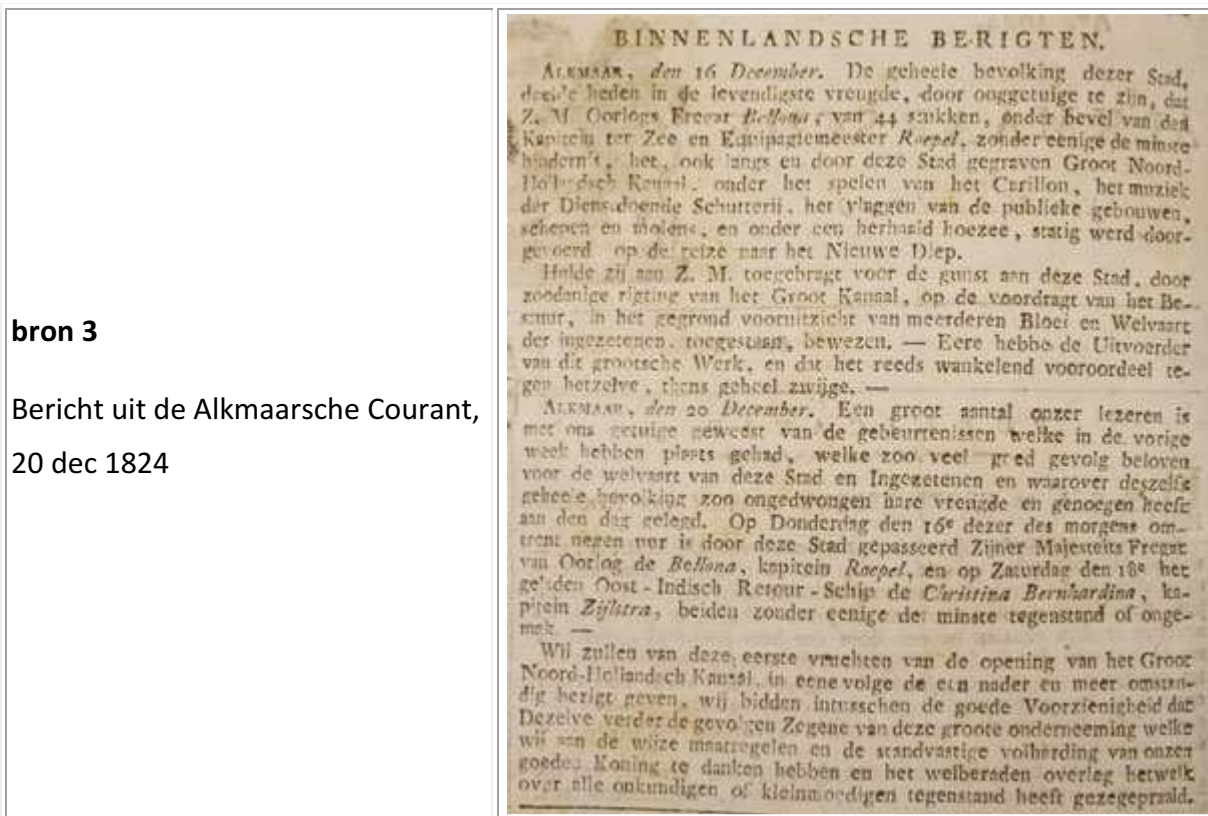 bron 3
Bericht uit de Alkmaarsche Courant,
20 dec 1824
BINNENLANDSCHE BERIGTEN.
ALKMAAR, den 16 December. De geheele bevolking dezer Stad,
deelde heden in de levendigste vreugde, door ooggetuige te zijn, dat
Z. M. Oorlogs Fregat Bellona, van 44 stukken, onder bevel van den
Kapitein ter Zee en Equipagiemeester Roepel, zonder eenige de minste
hindernis, het, ook langs en door deze Stad gegraven Groot Noord-
Hollandsch Kanaal, onder het spelen van het Carillon, het muziek
der Dienstdoende Schutterij, het vlaggen van de publieke gebouwen,
schepen en molens, en onder een herhaald hoezee, statig werd door-
gevoerd op de reize naar het Nieuwe Diep.
Hulde zij aan Z. M. toegebragt voor de gunst aan deze Stad, door
zoodanige rigting van het Groot Kanaal, op de voordragt van het Be-
stuur, in het gegrond vooruitzicht van meerderen Bloei en Welvaart
der ingezetenen, toegestaan, bewezen. — Eere hebbe de Uitvoerder
van dit grootsche Werk, en dat het reeds wankelend vooroordeel te-
gen hetzelve, thens geheel zwijge. —
ALKMAAR, den 20 December. Een groot aantal onzer lezeren is
met ons getuige geweest van de gebeurtenissen welke in de vorige
week hebben plaats gehad, welke zoo veel goed gevolg beloven
voor de welvaart van deze Stad en Ingezetenen en waarover deszelfs
geheele bevolking zoo ongedwongen hare vreugde en genoegen heeft
aan den dag gelegd. Op Donderdag den 16e dezer des morgens om-
trent negen uur is door deze Stad gepasseerd Zijner Majesteits Fregat
van Oorlog de Bellona, kapitein Roepel, en op Zaturdag den 18e het
geladen Oost-Indisch Retour-Schip de Christina Bernhardina, ka-
pitein Zijlstra, beiden zonder eenige de minste tegenstand of onge-
mak. —
Wij zullen van deze eerste vruchten van de opening van het Groot
Noord-Hollandsch Kanaal, in eene volgende een nader en meer omstan-
dig berigt geven, wij bidden intusschen de goede Voorzienigheid dat
Dezelve verder de gevolgen Zegene van deze groote onderneeming welke
wij aan de wijze maatregelen en de standvastige volharding van onzen
goeden Koning te danken hebben en het welberaden overleg hetwelk
over alle onkundigen of kleinmoedigen tegenstand heeft gezegepraald.